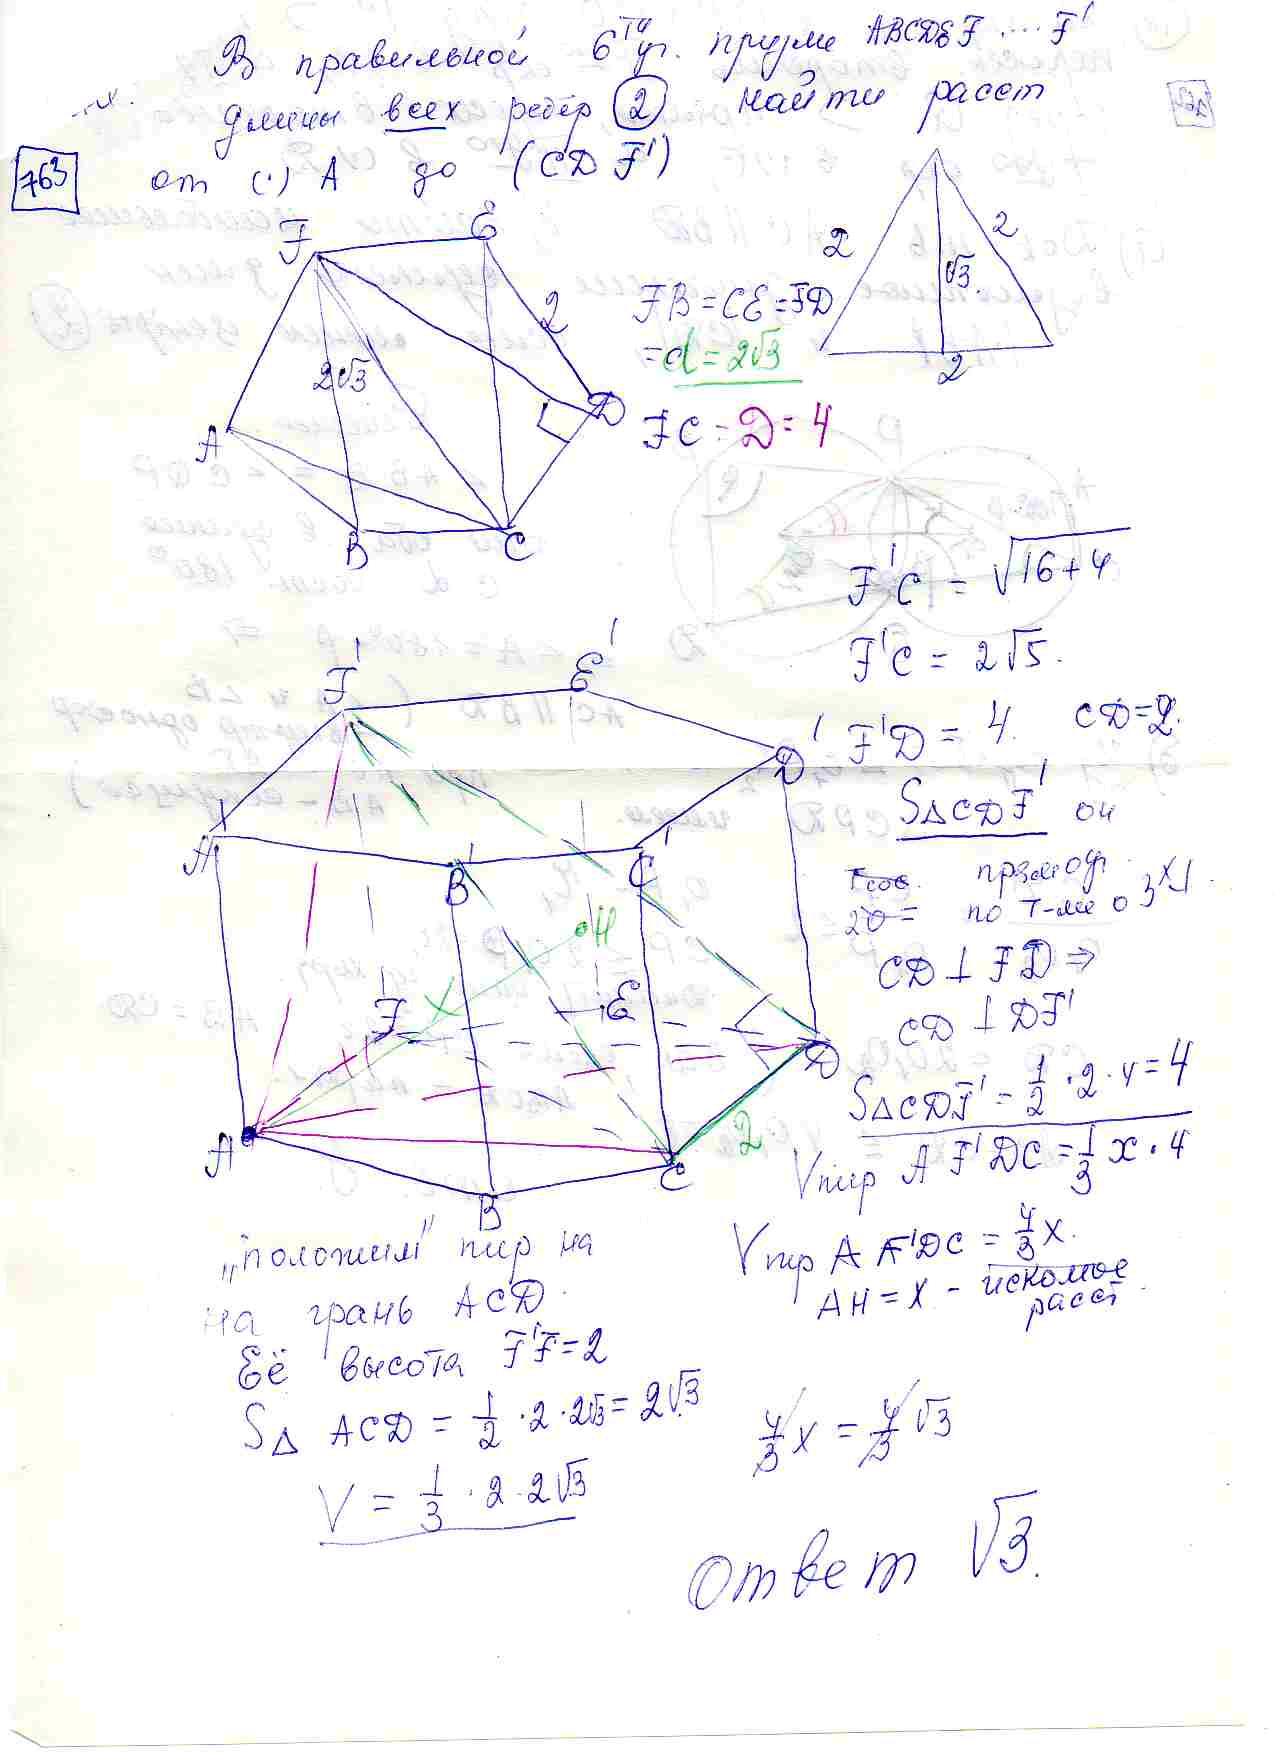 В правильной 6ти уг. призме ABCDEF....F'
длины всех рёбер 2 найти расст
763 от (·) A до (CDF')
F E
2
2√3
A
D
B C
2 2
√3
2
FB = CE = FD
= d = 2√3
FC = D = 4
F'C = √16+4
F'C = 2√5.
F'D = 4. CD = 2.
S△CDF' он
прямоуг.
2D = по т-ме о 3х⊥.
CD ⊥ FD ⇒
CD ⊥ DF'
S△CDF' = 1/2 · 2 · 4 = 4
Vпир AF'DC = 1/3 x · 4
Vпир AF'DC = 4/3 x.
AH = x - искомое
расст.
F' E'
D'
A'
B' C'
H
X
F E
D
A
2
C
B
"положим" пир на
на грань ACD.
Её высота F'F = 2
S△ ACD = 1/2 · 2 · 2√3 = 2√3
V = 1/3 · 2 · 2√3
4/3 x = 4/3 √3
Ответ √3.